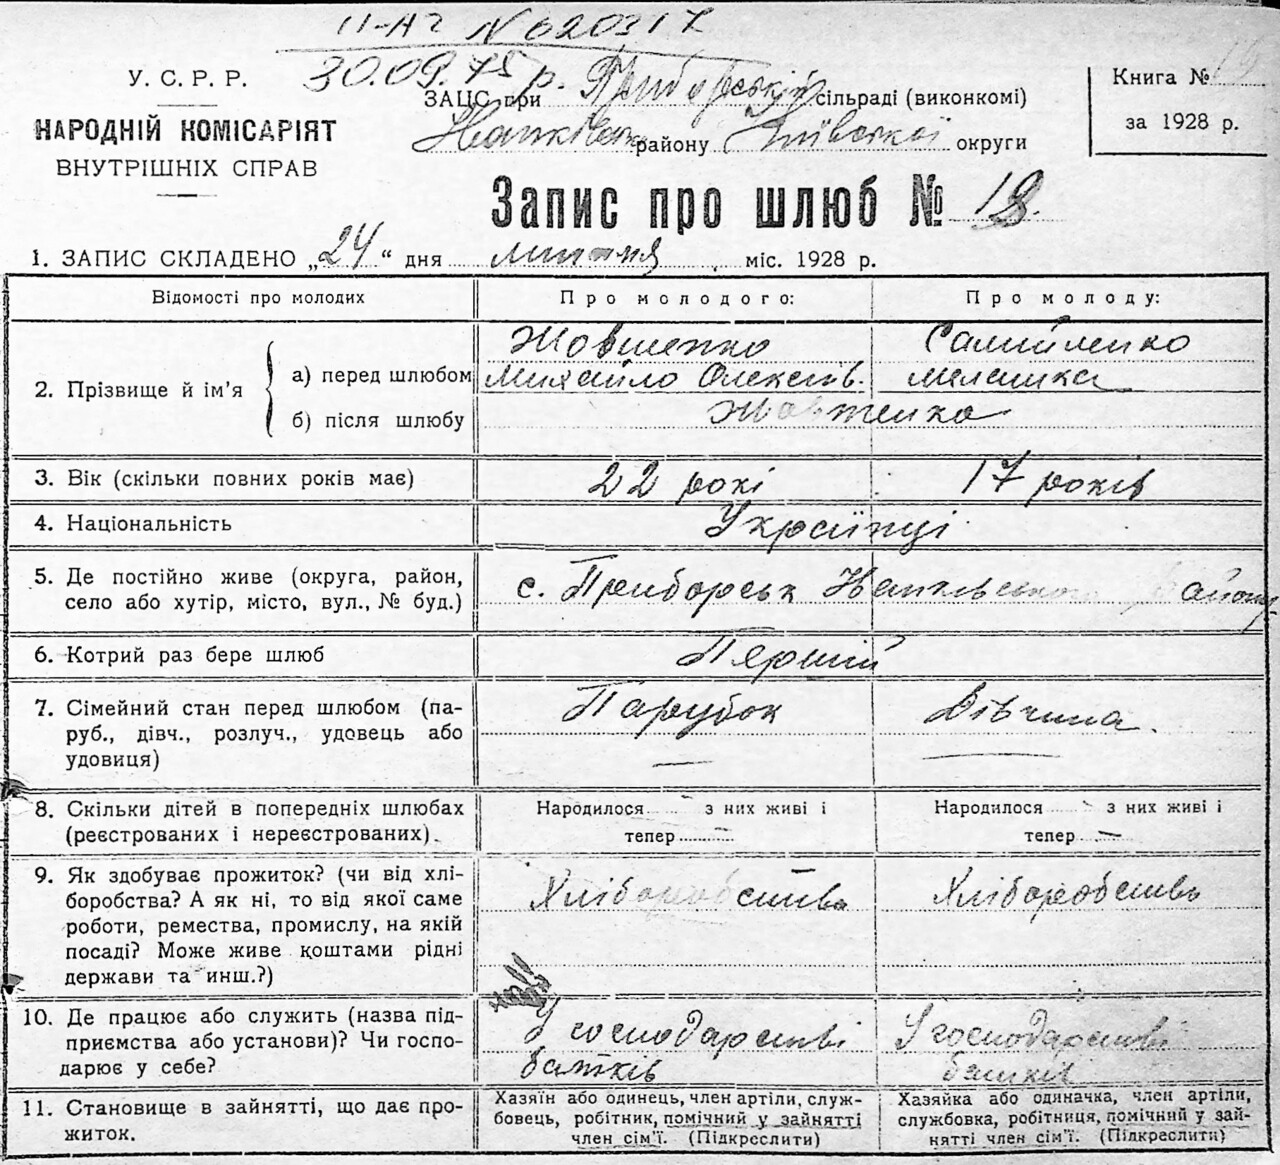 ІІ-АГ № 620317
30.09.75 р.
У. С. Р. Р.
НАРОДНІЙ КОМІСАРІЯТ
ВНУТРІШНІХ СПРАВ
ЗАЦС при Приборській сільраді (виконкомі)
району Київської округи
Книга №
за 1928 р.
Запис про шлюб № 18.
1. ЗАПИС СКЛАДЕНО „24“ дня липня міс. 1928 р.
Відомості про молодих
Про молодого:
Про молоду:
2. Прізвище й ім’я
а) перед шлюбом
Жовтенко
Михайло Олексів.
Самійленко
Меланка
б) після шлюбу
Жовтенко
3. Вік (скільки повних років має)
22 рокі
17 років
4. Національність
Українці
5. Де постійно живе (округа, район,
село або хутір, місто, вул., № буд.)
с. Приборськ Іванківського району
6. Котрий раз бере шлюб
Перший
7. Сімейний стан перед шлюбом (па-
руб., дівч., розлуч., удовець або
удовиця)
Парубок
—
Дівчина.
—
8. Скільки дітей в попередніх шлюбах
(реєстрованих і нереєстрованих).
Народилося - з них живі і
тепер —
Народилося - з них живі і
тепер —
9. Як здобуває прожиток? (чи від хлі-
боробства? А як ні, то від якої саме
роботи, ремества, промислу, на якій
посаді? Може живе коштами рідні
держави та инш.?)
Хліборобство
Хліборобство
10. Де працює або служить (назва під-
приємства або установи)? Чи госпо-
дарює у себе?
У господарстві
батків
У господарстві
батків
11. Становище в зайнятті, що дає про-
житок.
Хазяїн або одинець, член артіли, служ-
бовець, робітник, помічний у зайнятті
член сім’ї. (Підкреслити)
Хазяйка або одиначка, член артіли,
службовка, робітниця, помічний у зай-
нятті член сім’ї. (Підкреслити)